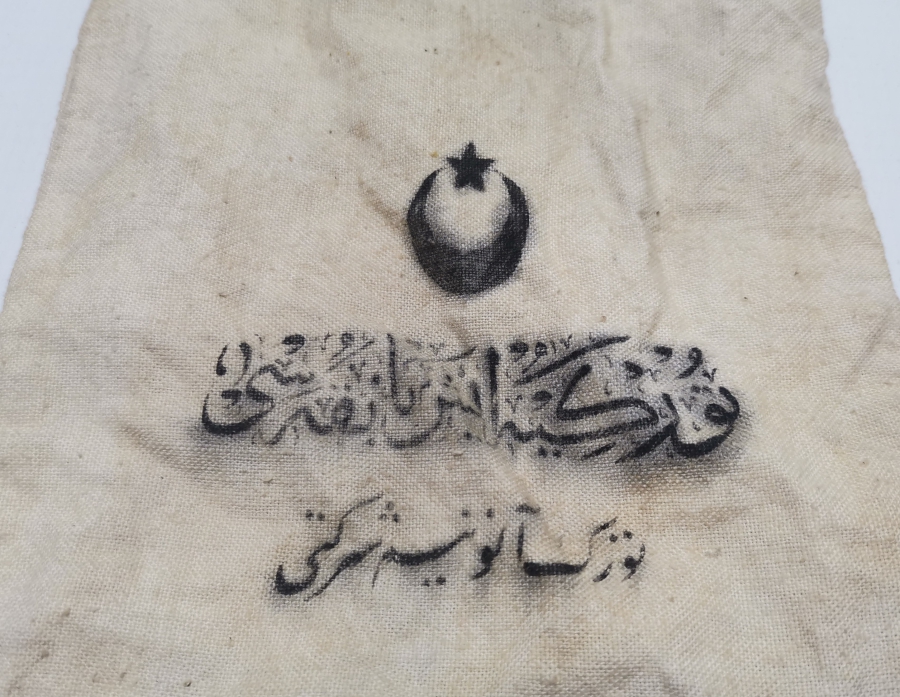 تورکیه بانقه سی
تورک آنونیم شرکتی